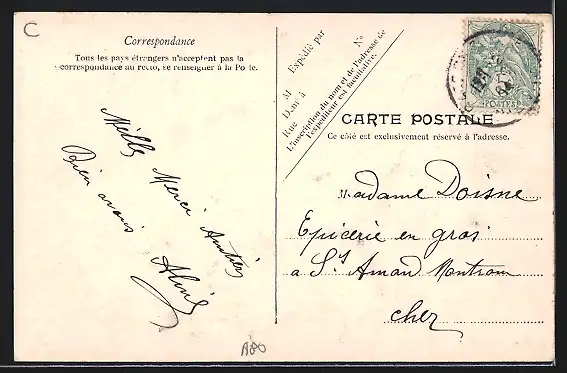 C
Correspondance
Tous les pays étrangers n'acceptent pas la
correspondance au recto, se renseigner à la Poste.
Mille Merci Amitiés
Bien amis
Aline
Expédié par
M N°
Demt à
Rue
L'inscription du nom et de l'adresse de
l'expéditeur est facultative.
POSTES
CARTE POSTALE
Ce côté est exclusivement réservé à l'adresse.
Madame Doisne
Epicerie en gros
à St Amand Montrom
Cher
A80